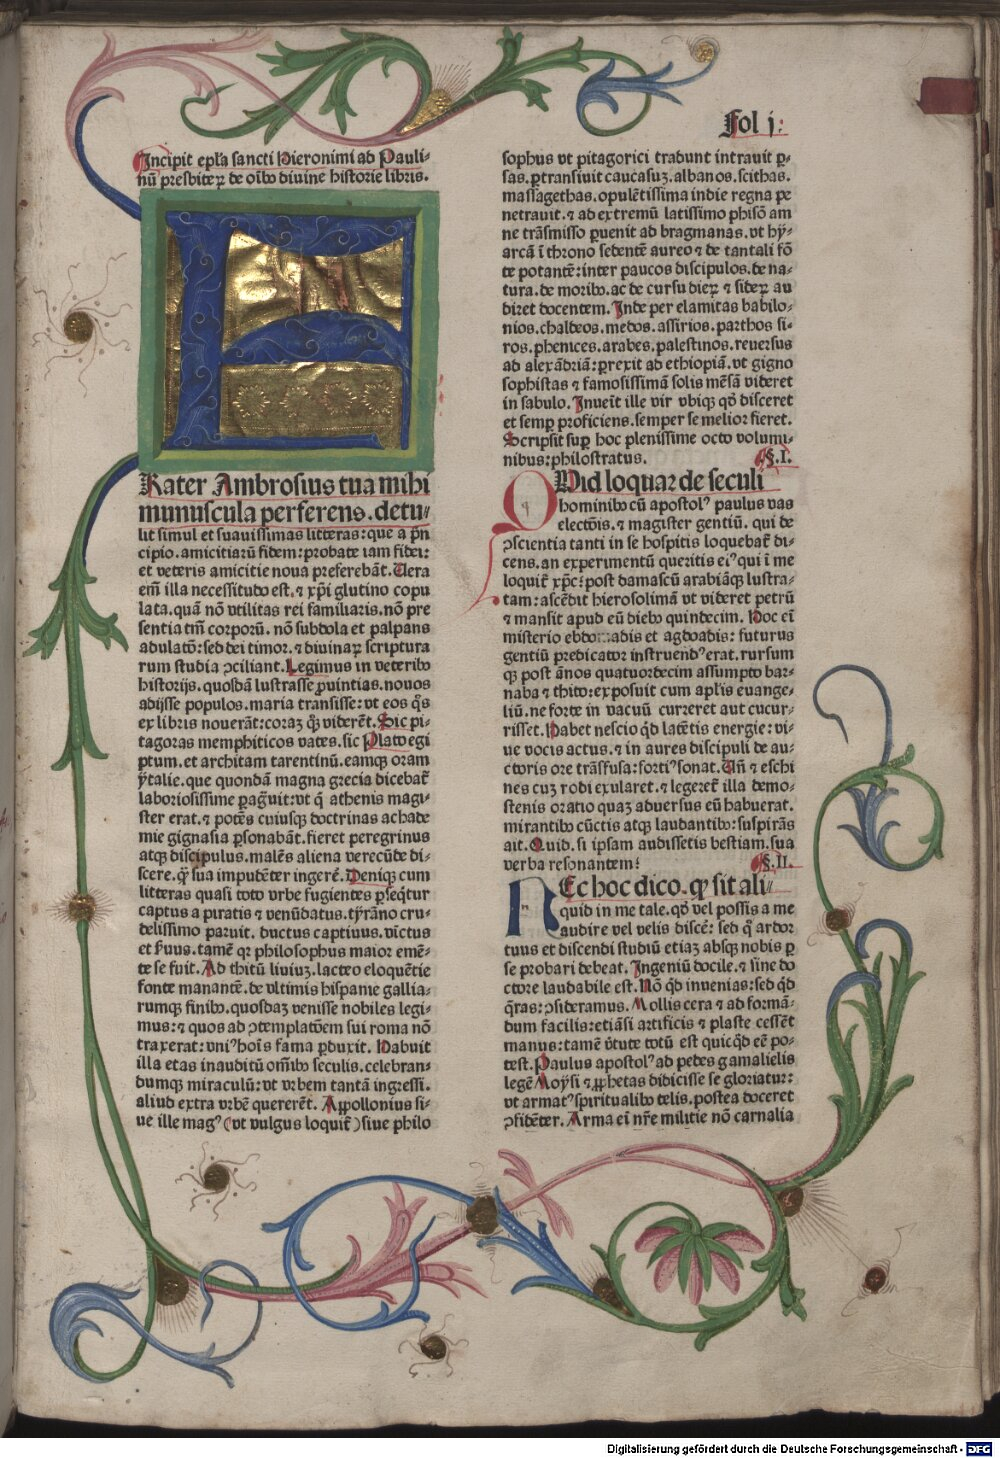 Fol j.
Incipit epl'a sancti Hieronimi ad Pauli-
nū presbiteꝝ de oībꝰ diuine historie libris.
FRater Ambrosius tua mihi
munuscula perferens. detu-
lit simul et suauissimas litteras: que a pͥn
cipio. amicitiarū fidem: probate iam fidei:
et veteris amicitie noua preferebāt. Uera
em̄ illa necessitudo est. ⁊ xp̄i glutino copu
lata. quā nō vtilitas rei familiaris. nō pre
sentia tm̄ corporū. nō subdola et palpans
adulatō: sed dei timor. ⁊ diuinaꝝ scriptura
rum studia ꝯciliant. Legimus in veteribꝰ
historijs. quosdā lustrasse ꝓuintias. nouos
adijsse populos. maria transisse: vt eos q̄s
ex libris nouerāt: coraꝫ qͦꝫ viderēt. Sic pi-
tagoras memphiticos vates. sic Plato egi
ptum. et architam tarentinū. eamqꝫ oram
ytalie. que quondā magna grecia dicebat̄
laboriosissime ꝑagͥuit: vt qͥ athenis magi-
ster erat. ⁊ potēs cuiusqꝫ doctrinas achade
mie gignasia ꝑsonabāt. fieret peregrinus
atqꝫ discipulus. malēs aliena verecūde di-
scere. qͣꝫ sua impudēter ingerē. Deniqꝫ cum
litteras quasi toto vrbe fugientes ꝑseq̄tur
captus a piratis ⁊ venūdatus. tyrāno cru-
delissimo paruit. ductus captiuus. victus
et ẜuus. tamē qꝛ philosophus maior emē-
te se fuit. Ad thitū liuiuꝫ. lacteo eloquētie
fonte manantē. de vltimis hispanie gallia-
rumqꝫ finibꝰ. quosdaꝫ venisse nobiles legi-
mus: ⁊ quos ad ꝯtemplatōem sui roma nō
traxerat: vniꝰ hoīs fama ꝑduxit. Habuit
illa etas inauditū om̄ibꝰ seculis. celebran-
dumqꝫ miraculū: vt vrbem tantā ingressi.
aliud extra vrbē quererēt. Appollonius si-
ue ille magꝰ (vt vulgus loquit̄) siue philo
sophus vt pitagorici tradunt intrauit ꝑ-
sas. ꝑtransiuit caucasuꝫ. albanos. scithas.
massagethas. opulētissima indie regna pe
netrauit. ⁊ ad extremū latissimo phisō am
ne trāsmisso ꝑuenit ad bragmanas. vt hy-
arcā ī throno sedentē aureo ⁊ de tantali fō
te potantē: inter paucos discipulos. de na-
tura. de moribꝰ. ac de cursu dieꝝ ⁊ sideꝝ au
diret docentem. Inde per elamitas babilo-
nios. chaldeos. medos. assirios. parthos si-
ros. phenices. arabes. palestinos. reuersus
ad alexādriā: ꝑrexit ad ethiopiā. vt gigno
sophistas ⁊ famosissimā solis mēsā videret
in sabulo. Inueīt ille vir vbiqꝫ qͦd disceret
et semꝑ proficiens. semper se melior fieret.
Scripsit suꝑ hoc plenissime octo volumi-
nibus: philostratus. §.I.
QUid loquar de seculi
hominibꝰ cū apostolꝰ paulus vas
electōis. ⁊ magister gentiū. qui de
ꝯscientia tanti in se hospitis loquebat̄ di-
cens. an experimentū queritis eiꝰ qui ī me
loquit̄ xp̄c: post damascū arabiāqꝫ lustra-
tam: ascēdit hierosolimā vt videret petrū
⁊ mansit apud eū diebꝰ quindecim. Hoc em̄
misterio ebdomadis et agdoadis: futurus
gentiū predicator instruendꝰ erat. rursum
qꝫ post ānos quatuordecim assumpto bar-
naba ⁊ thito: exposuit cum apl̄is euange-
liū. ne forte in vacuū curreret aut cucur-
risset. Habet nescio qͥd latētis energie: vi-
ue vocis actus. ⁊ in aures discipuli de au-
ctoris ore trāsfusa: fortiꝰ sonat. Uñ ⁊ eschi
nes cuꝫ rodi exularet. ⁊ legeret̄ illa demo-
stenis oratio quaꝫ aduersus eū habuerat.
mirantibꝰ cūctis atqꝫ laudantibꝰ: suspirās
ait. Quid. si ipsam audissetis bestiam. sua
verba resonantem: §.II.
NEc hoc dico. qͦ sit ali-
quid in me tale. qͦd vel possis a me
audire vel velis discē: sed qͦ ardor
tuus et discendi studiū etiaꝫ absqꝫ nobis ꝑ
se probari debeat. Ingeniū docile. ⁊ sine do
ctore laudabile est. Nō qͥd inuenias: sed qͥd
q̄ras: ꝯsideramus. Mollis cera ⁊ ad formā-
dum facilis: etiāsi artificis ⁊ plaste cessēt
manus: tamē v̓tute totū est quicqͥd eē po-
test. Paulus apostolꝰ ad pedes gamalielis
legē Moysi ⁊ ꝓphetas didicisse se gloriatur:
vt armatꝰ spiritualibꝰ telis. postea doceret
ꝯfidēter. Arma em̄ nr̄e militie nō carnalia
Digitalisierung gefördert durch die Deutsche Forschungsgemeinschaft - DFG